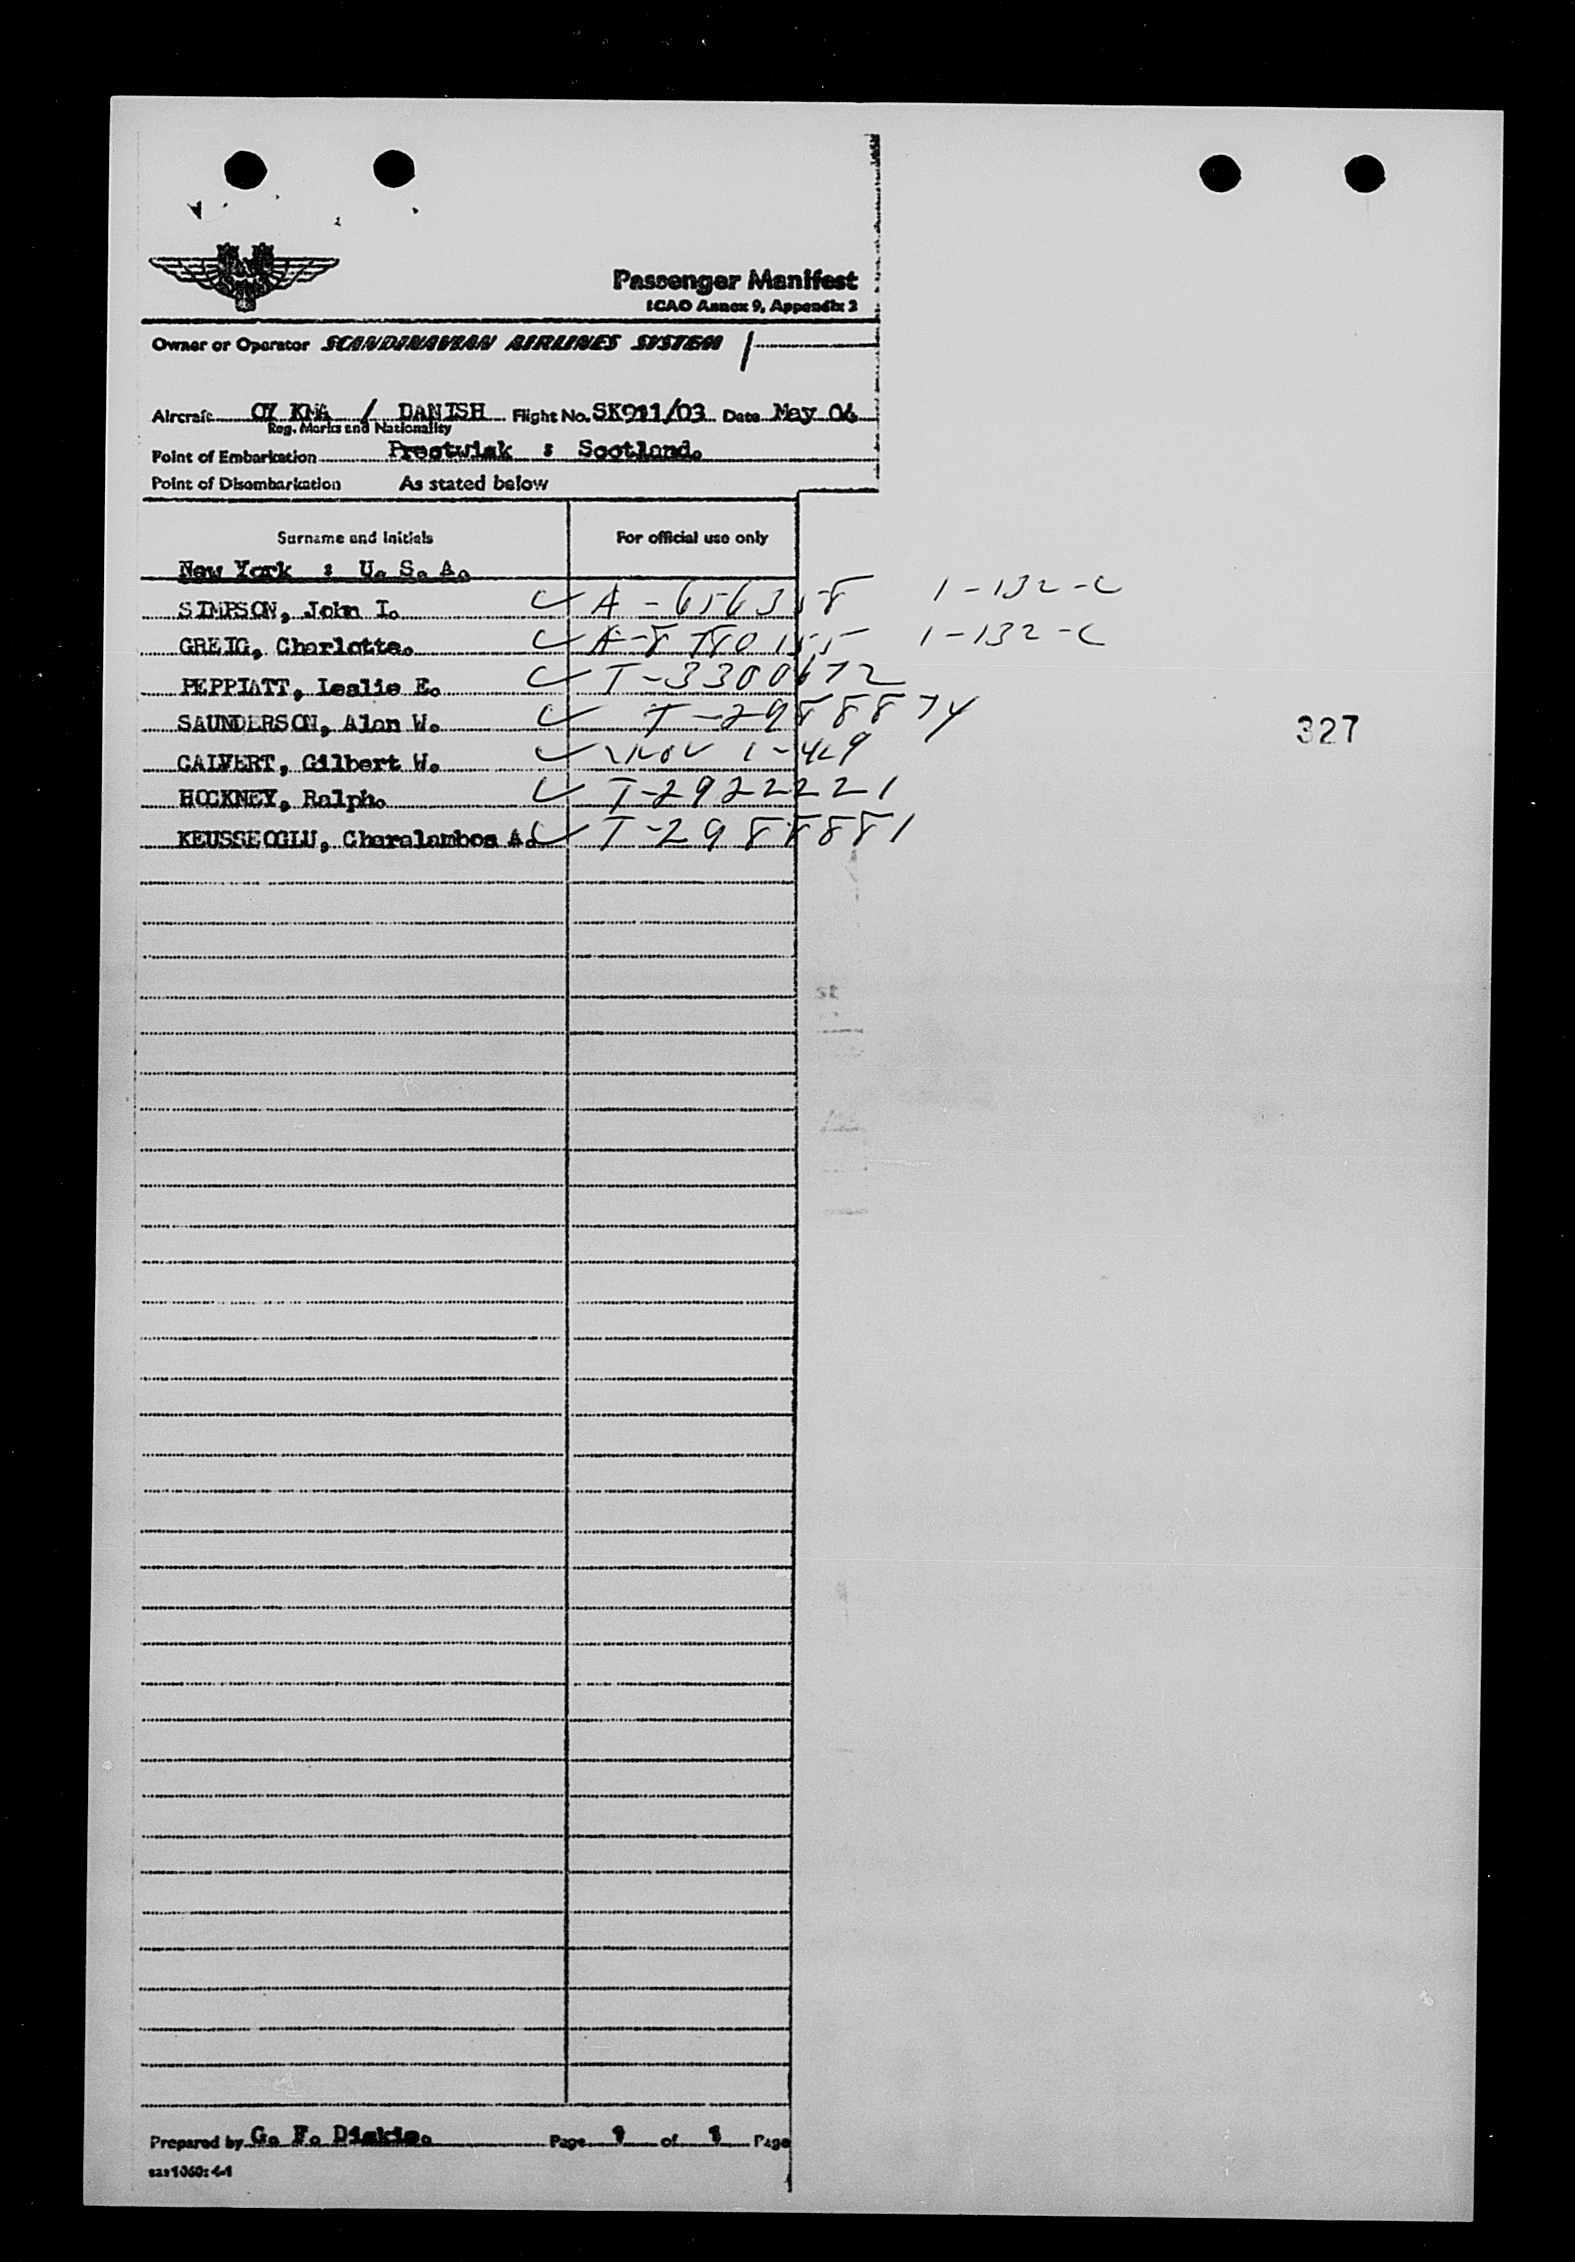 Passenger Manifest
ICAO Annex 9, Appendix 2
Owner or Operator SCANDINAVIAN AIRLINES SYSTEM /
Aircraft OY KMA / DANISH Flight No. SK911/03 Date May 06
Reg. Marks and Nationality
Point of Embarkation Prestwick : Scotland.
Point of Disembarkation As stated below
Surname and Initials For official use only
New York : U. S. A.
SIMPSON, John I. A-656358 1-132-C
GREIG, Charlotte. 1-132-C
PEPPIATT, Leslie E. T-3300672
SAUNDERSON, Alan W. T-2988874
327
CALVERT, Gilbert W.
HOCKNEY, Ralph. T-2922221
KEUSSEOGLU, Charalambos A. T-2988881
Prepared by G. F. Page 1 of 1 Page
sas 1060: 4-1